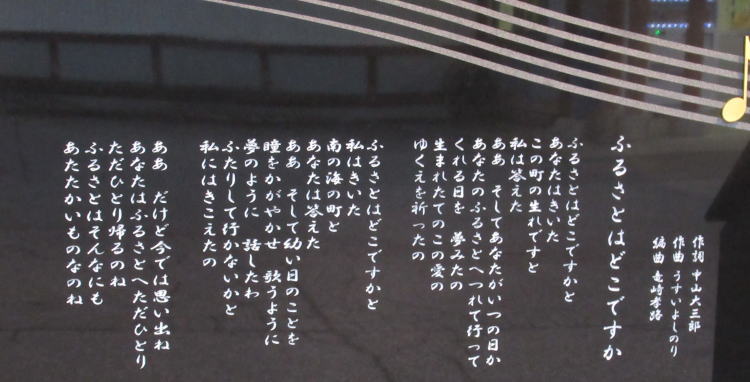 ふるさとはどこですか
作詞 中山大三郎
作曲 うすいよしのり
編曲 竜崎孝路
ふるさとはどこですかと
あなたはきいた
この町の生れですと
私は答えた
ああ そしてあなたがいつの日か
あなたのふるさとへつれて行って
くれる日を 夢みたの
生まれたてのこの愛の
ゆくえを祈ったの
ふるさとはどこですかと
私はきいた
南の海の町と
あなたは答えた
ああ そして幼い日のことを
瞳をかがやかせ 歌うように
夢のように 話したわ
ふたりして行かないかと
私にはきこえたの
ああ だけど今では思い出ね
あなたはふるさとへただひとり
ただひとり帰るのね
ふるさとはそんなにも
あたたかいものなのね